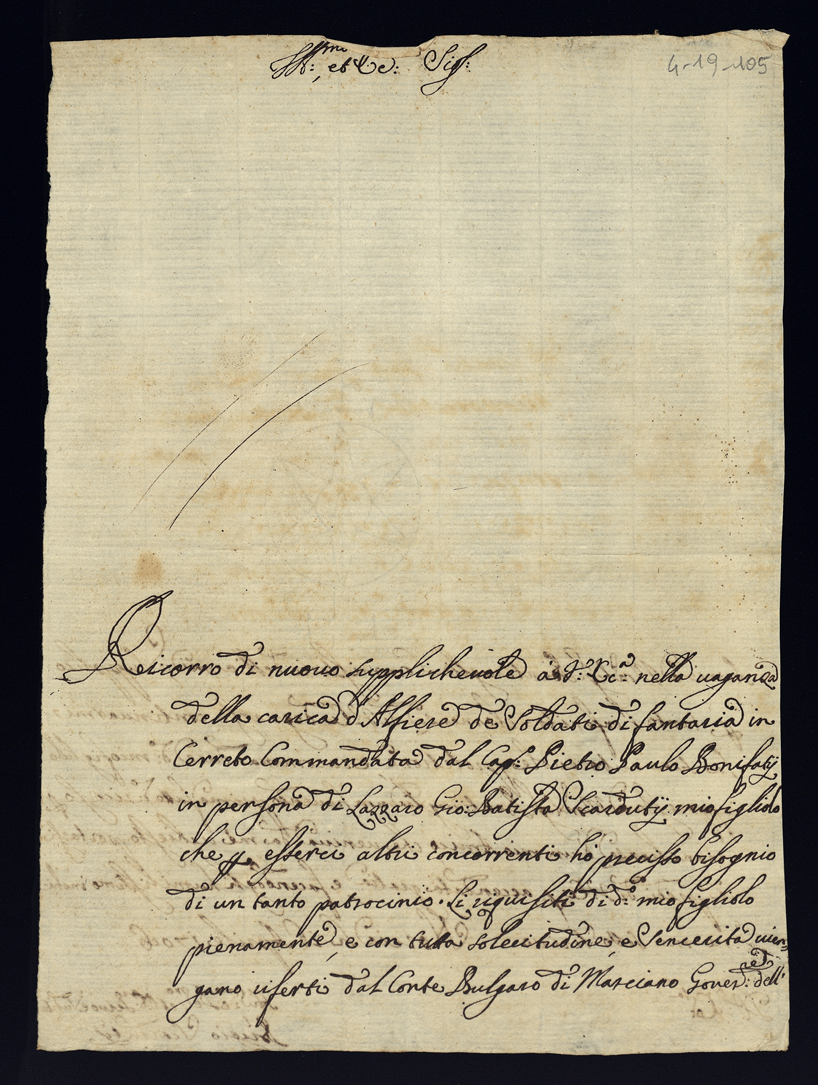 Ill:mo, et Ecc: Sig:
4-19-105
Ricorro di nuovo supplichevole à V: Ecc:a nella vaganza
della carica d'Alfiere de Soldati di fantaria in
Cerreto Commandata dal Cap: Pietro Paulo Bonifatij
in persona di Lazzaro Gio: Batista Scardutij mio figliolo
che p esserci altri concorrenti hò preciso bisognio
di un tanto patrocinio. Li riquisiti di d:o mio figliolo
pienamente, e con tutta solecitudine, e sencerità vien-
gano riferti dal Conte Bulgaro di Marciano Gover:re dell'